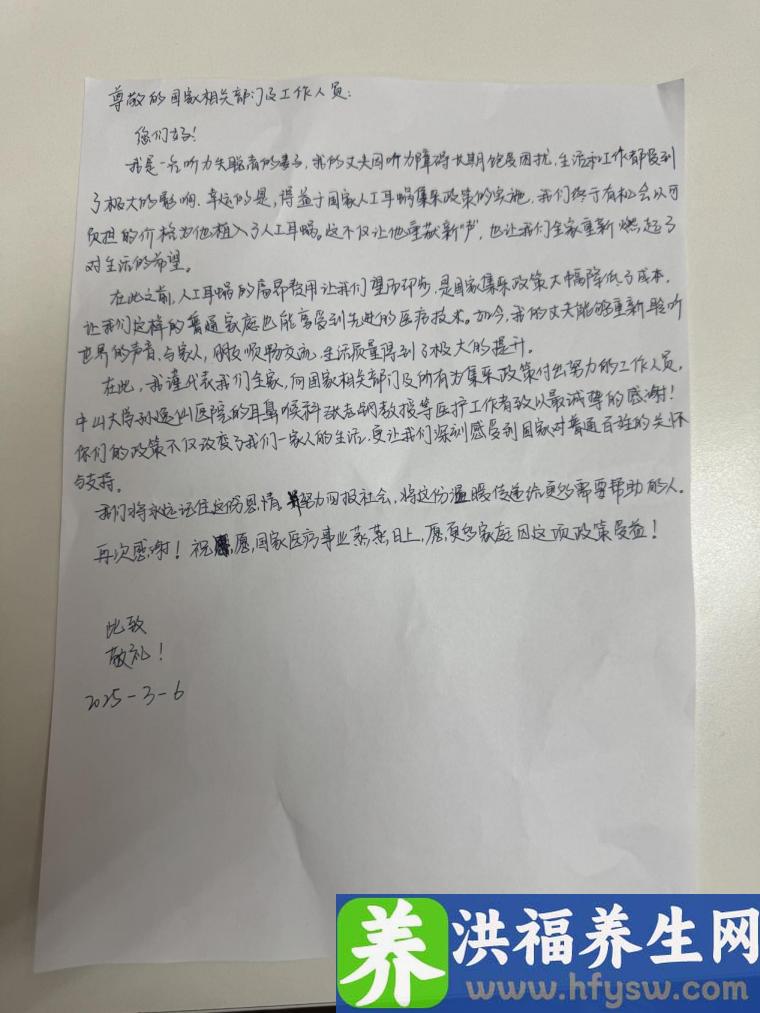 尊敬的国家相关部门及工作人员:
您们好!
我是一名听力失聪者的妻子,我的丈夫因听力障碍长期饱受困扰,生活和工作都受到
了极大的影响、幸运的是,得益于国家人工耳蜗集采政策的实施,我们终于有机会以可
负担的价格为他植入了人工耳蜗。这不仅让他重获新"声",也让我们全家重新燃起了
对生活的希望。
在此之前,人工耳蜗的高昂费用让我们望而却步,是国家集采政策大幅降低了成本,
让我们这样的普通家庭也能享受到先进的医疗技术。如今,我的丈夫能够重新聆听
世界的声音,与家人,朋友顺畅交流,生活质量得到了极大的提升。
在此,我谨代表我们全家,向国家相关部门及所有为集采政策付出努力的工作人员,
中山大学孙逸仙医院的耳鼻喉科张志钢教授等医护工作者致以最诚挚的感谢!
你们的政策不仅改变了我们一家人的生活,更让我们深刻感受到国家对普通百姓的关怀
与支持。
我们将永远记住这份恩情,努力回报社会,将这份温暖传递给更多需要帮助的人。
再次感谢!祝愿,国家医疗事业蒸蒸日上,愿更多家庭因这项政策受益!
此致
敬礼!
2025-3-6
养 洪福养生网
www.hfysw.com